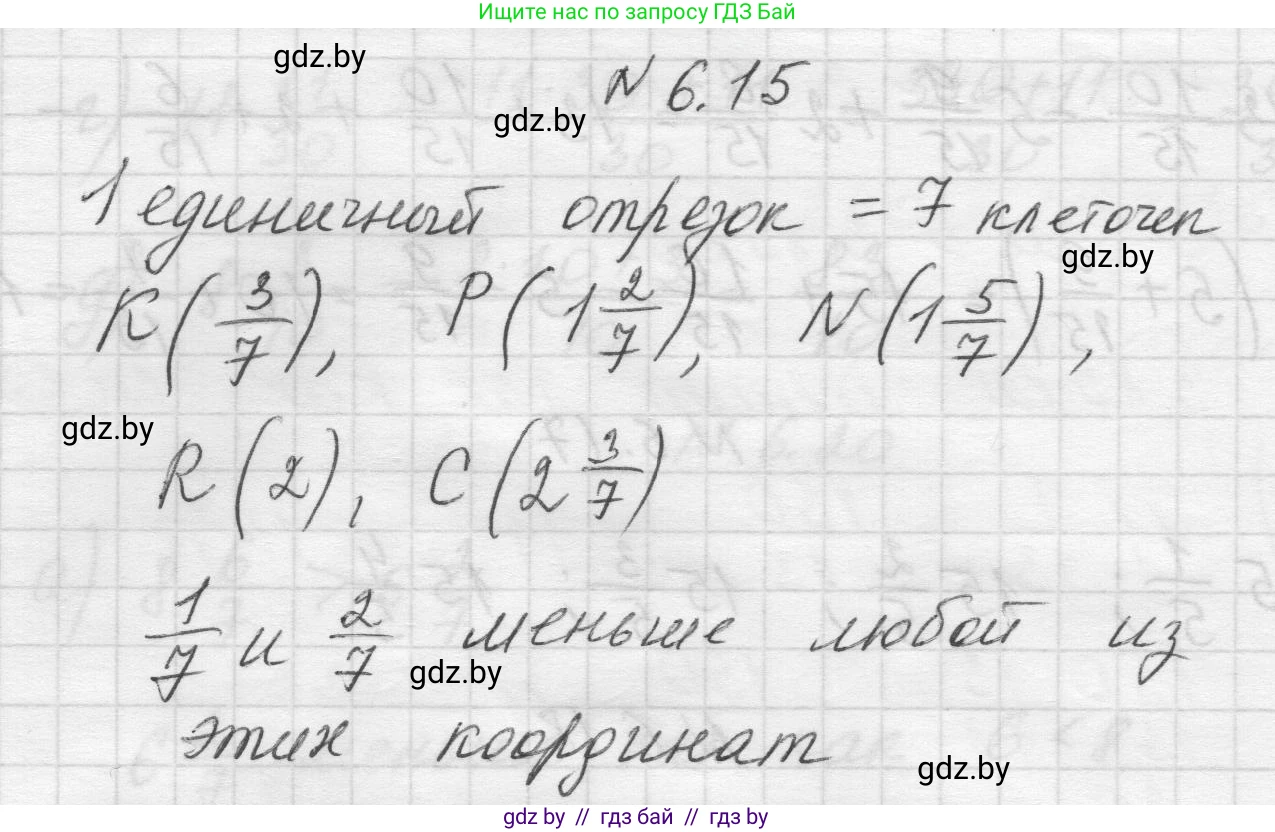 Ищите нас по запросу ГДЗ Бай
gdz.by
N 6.15
gdz.by
1 единичный отрезок = 7 клеточек
gdz.by
K(3/7), P(1 2/7), N(1 5/7),
gdz.by
R(2), C(2 3/7)
1/7 и 2/7 меньше любой из
gdz.by
этих координат
gdz.by
gdz by // гдз бай // gdz by